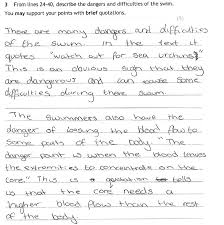 3 From lines 24-40, describe the dangers and difficulties of the swim.
You may support your points with brief quotations.
There are many dangers and difficulties
of the swim in the text it
quotes "watch out for sea urchins"
This is an obvious sign that they
are dangerous and can cause some
difficulties during there swim.
The swimmers also have the
danger of loosing the blood flow to
some parts of the body "The
danger point is when the blood leaves
the extremities to concentrate on the
core." This is a quotation tells
us that the core needs a
higher blood flow than the rest
of the body.